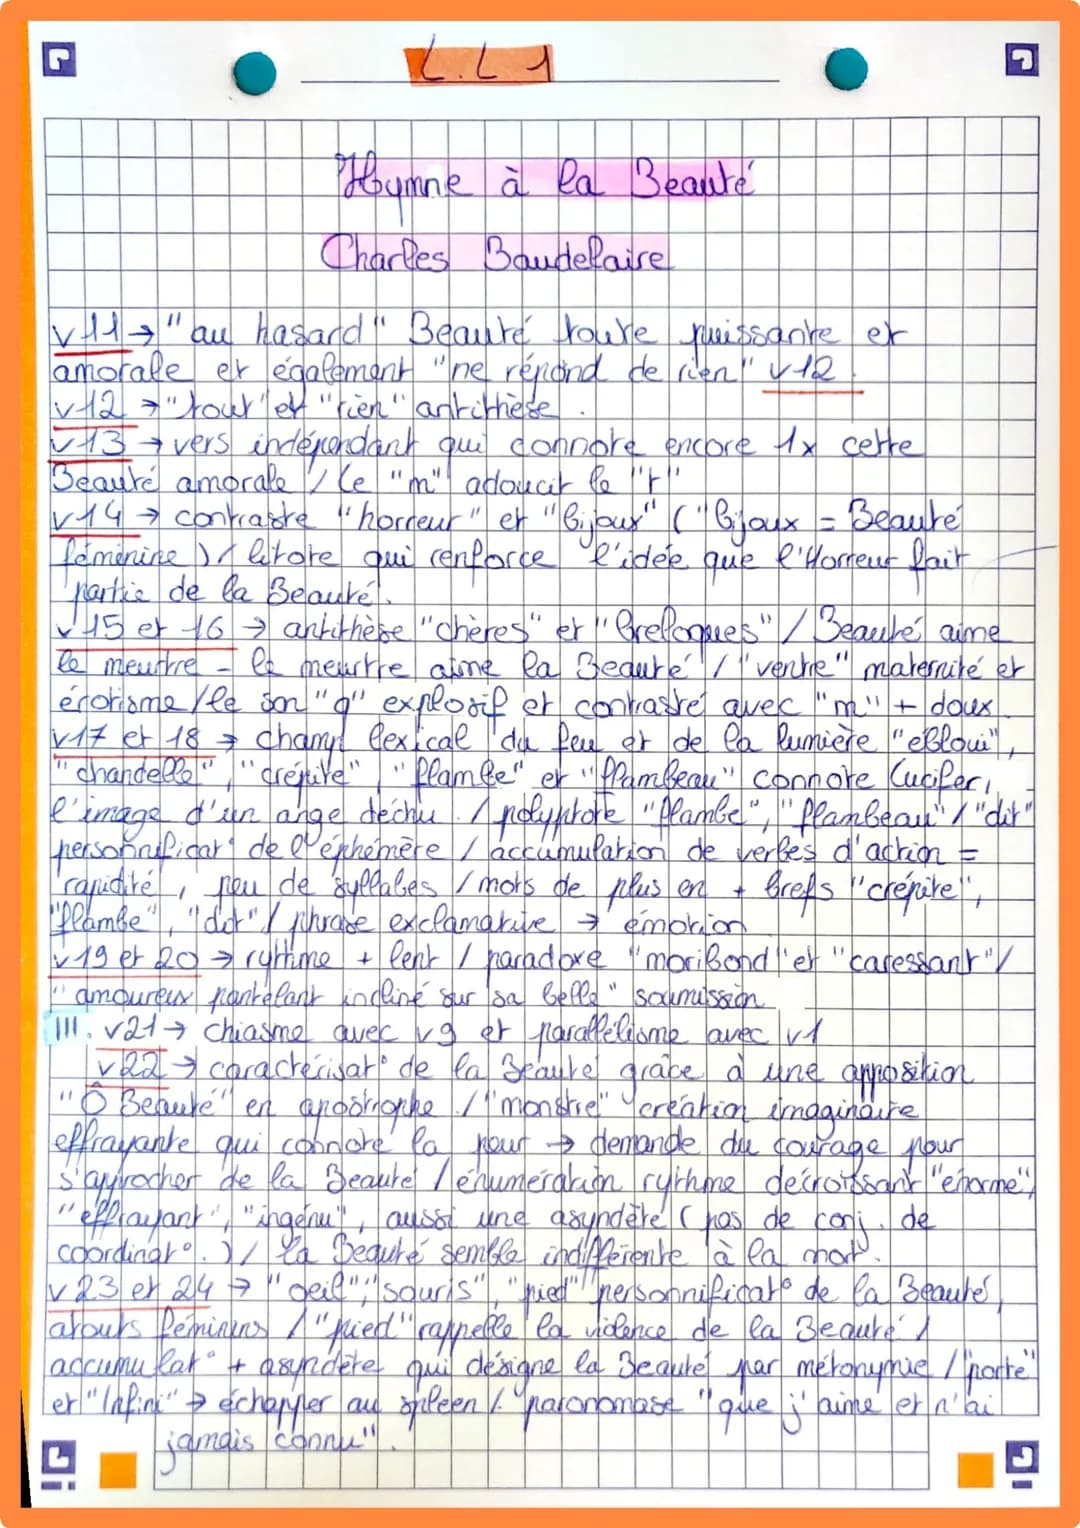 L.L 1
Hymne à la Beauté
Charles Baudelaire
v11 → "au hasard" Beauté toute puissante et
amorale et également "ne répond de rien" v12.
v12 → "tout" et "rien" antithèse.
v13 → vers indépendant qui connote encore 1x cette
Beauté amorale / Le "m" adoucit le "r"
v14 → contraste "horreur" et "bijoux" ("bijoux = Beauté
féminine) / litote qui renforce l'idée que l'Horreur fait
partie de la Beauté.
v15 et 16 → antithèse "chères" et "breloques" / Beauté aime
le meurtre - le meurtre aime la Beauté / "ventre" maternité et
érotisme / le son "q" explosif et contrasté avec "m" + doux.
v17 et 18 → champ lexical du feu et de la lumière "ébloui",
"chandelle", "crépite", "flambe" et "flambeau" connote Lucifer,
l'image d'un ange déchu. / polyptote "flambe", "flambeau" / "dit"
personnificat° de l'éphémère / accumulation de verbes d'action =
rapidité, peu de syllabes / mots de plus en + brefs "crépite",
"flambe", "dit" / phrase exclamative → émotion
v19 et 20 → rythme + lent / paradoxe "moribond" et "caressant" /
"amoureux pantelant incliné sur sa belle" soumission
III. v21 → chiasme avec v9 et parallélisme avec v1
v22 → caractérisat° de la Beauté grâce à une apposition
"Ô Beauté" en apostrophe. / "monstre" création imaginaire
effrayante qui connote la peur → demande du courage pour
s'approcher de la Beauté / énumération rythme décroissant "énorme",
"effrayant", "ingénu", aussi une asyndète (pas de conj. de
coordinat°.) / la Beauté semble indifférente à la mort.
v23 et 24 → "oeil", "souris", "pied" personnificat° de la Beauté,
atouts féminins / "pied" rappelle la violence de la Beauté /
accumulat° + asyndète qui désigne la Beauté par métonymie / "porte"
et "Infini" → échapper au spleen /. paronomase "que j'aime et n'ai
jamais connu".